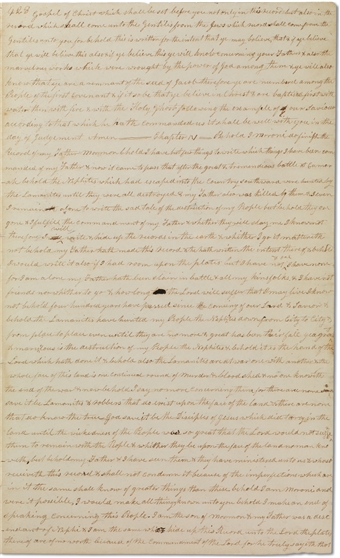 Gospel of Christ which shall be set before you not only in this record but also in the
record which shall come unto the Gentiles from the Jews which record shall come from the
Gentiles unto you for behold this is written for the intent that ye may believe that & if ye believe
that ye will believe this also & if ye believe this ye will know concerning your Fathers & also the
marvelous works which were wrought by the power of God among them & ye will also
know that ye are a remnant of the seed of Jacob therefore ye are numbered among the
People of the first covenant & if it so be that ye believe in Christ & are baptized first with
water then with fire & with the Holy Ghost following the example of our Saviour
according to that which he hath commanded us it shall be well with you in the
day of Judgement Amen Chapter Behold I Moroni do finish the
Record of my Father Mormon behold I have but few things to write which things I have been com
manded of my Father & now it came to pass that after the great & tremendious battle at Cumorah
behold the Nephites which had escaped into the country southward were hunted by
the Lamanites until they were all destroyed & my Father also was killed by them & I even
I remain alone to write the sad tale of the destruction of my People but behold they are
gone & I fulfill the commandment of my Father & whether they will slay me I know not
therefore I will write & hide up the records in the earth & whither I go it mattereth
not behold my Father hath made this record & he hath written the intent thereof & behold
I would write it also if I had room upon the plates but I have not & ore I have none
for I am alone my Father hath been slain in battle & all my kinsfolks & I have not
friends nor whither to go & how long the Lord will suffer that I may live I know
not behold four hundred years have passed since the coming of our Lord & Saviour
behold the Lamanites have hunted my People the Nephites down from City to City &
from place to place even until they are no more & great has been their fall yea great
& marvelous is the destruction of my People the Nephites & behold it is the hand of the
Lord which hath done it & behold also the Lamanites are at war one with another &
the whole face of this land is one continual round of murder & bloodshed & no one knoweth
the end of the war & now behold I say no more concerning them for there are none
save it be Lamanites & robbers that do exist upon the face of the land & there are none
that do know the true God save it be the Disciples of Jesus which did tarry in the
land until the wickedness of the People was so great that the Lord would not suffer
them to remain with the People & whether they be upon the face of the land no man know
eth but behold my Father & I have seen them & they have ministered unto us & whoso
receiveth this record & shall not condemn it because of the imperfections which are
in it the same shall know of greater things than these behold I am Moroni & and
were it possible I would make all things known unto you behold I make an end of
speaking concerning this People I am the son of Mormon & my Father was a des
cendant of Nephi & I am the same which hideth up this Record unto the Lord the plates
thereof are of no worth because of the commandment of the Lord for he truly saith that